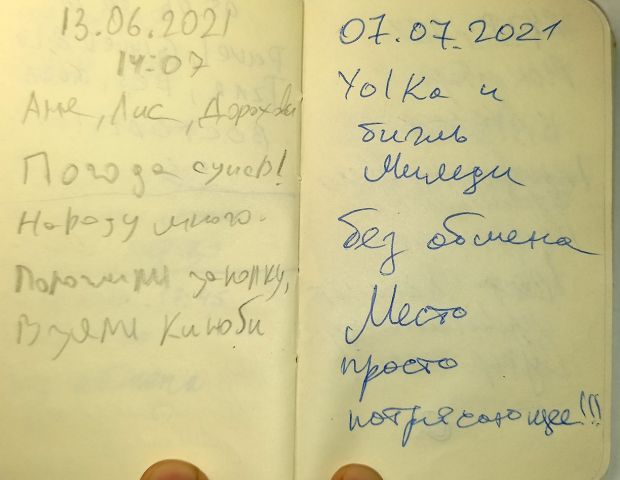 13.06.2021
14:07
Ане, Лис, Дорохов
Погода супер!
Народу много.
Положили заколку,
Взяли Киноби
07.07.2021
YolKa и
бигль
Миледи
без обмена
Место
просто
потрясающее!!!